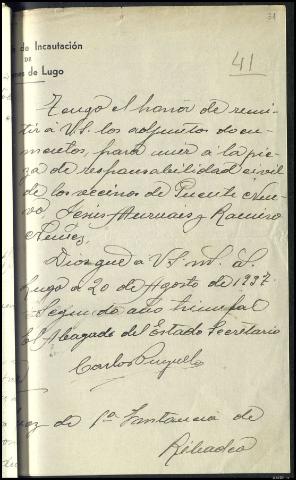 31
de Incautación
DE
nes de Lugo
41
Tengo el honor de remi-
tir á V.S. los adjuntos docu-
mentos, para unir á la pie-
za de responsabilidad civil
de los vecinos de Puente Nue-
vo, Jesus y Ramiro
Nuñez.
Dios gue a V.S. m. a.
Lugo a 20 de Agosto de 1937.
Segundo año triunfal
El Abogado del Estado Secretario
Carlos
de 1ª Instancia de
Ribadeo